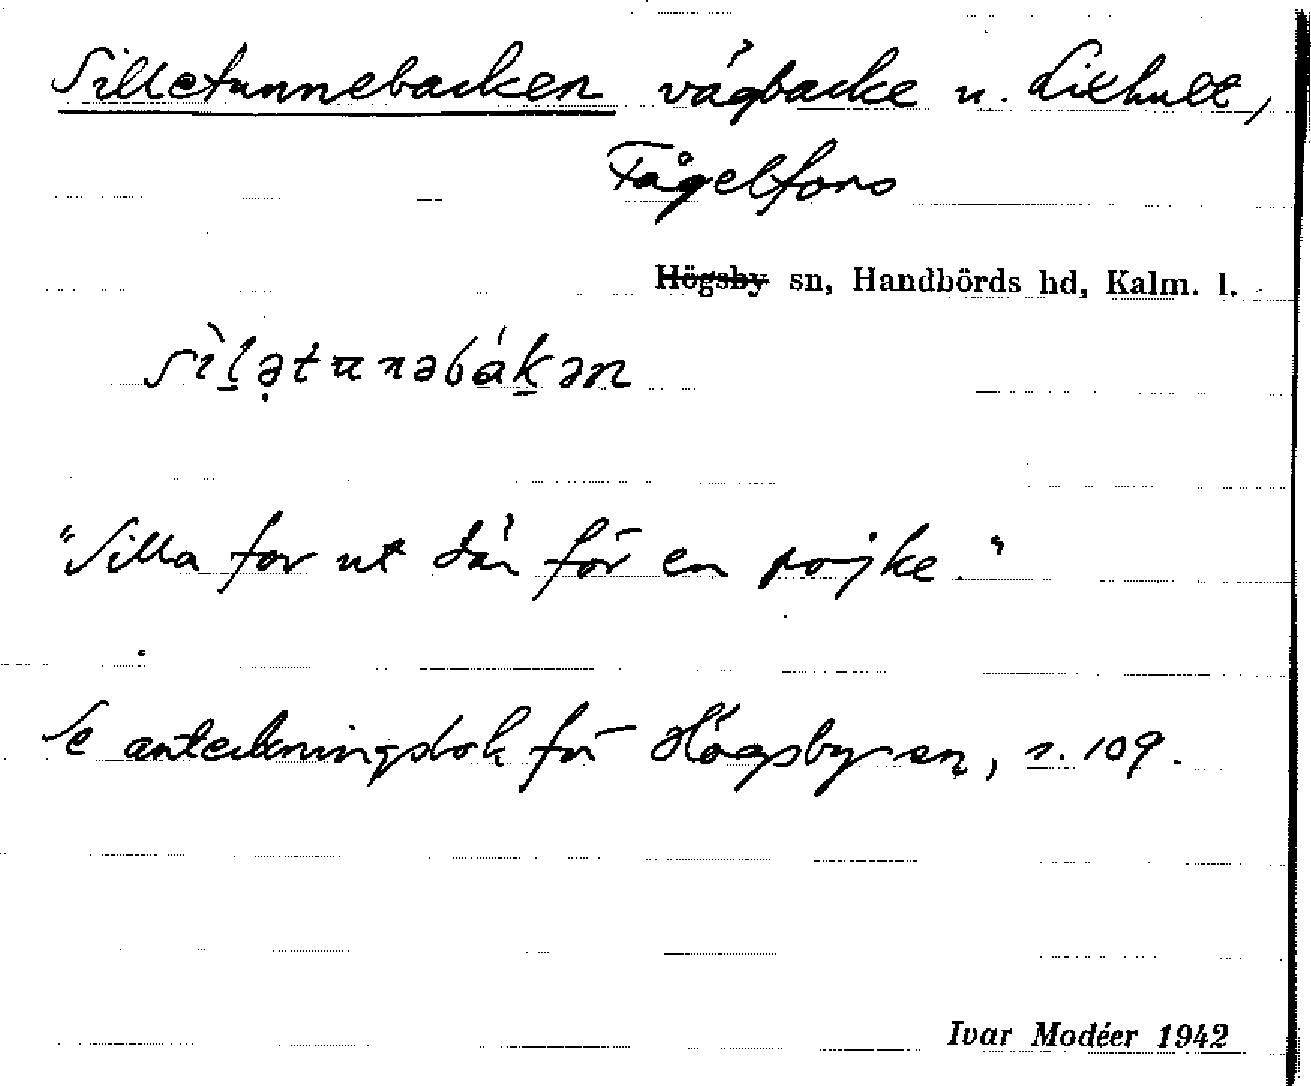 Silletunnebacken vägbacke u. Lixhult,
Fågelfors
Högsby sn, Handbörds hd, Kalm. l.
sìl̠ətunəbák̠ən
"Silla for ut där för en pojke."
Se anteckningsbok för Högsby sn, s. 109.
Ivar Modéer 1942